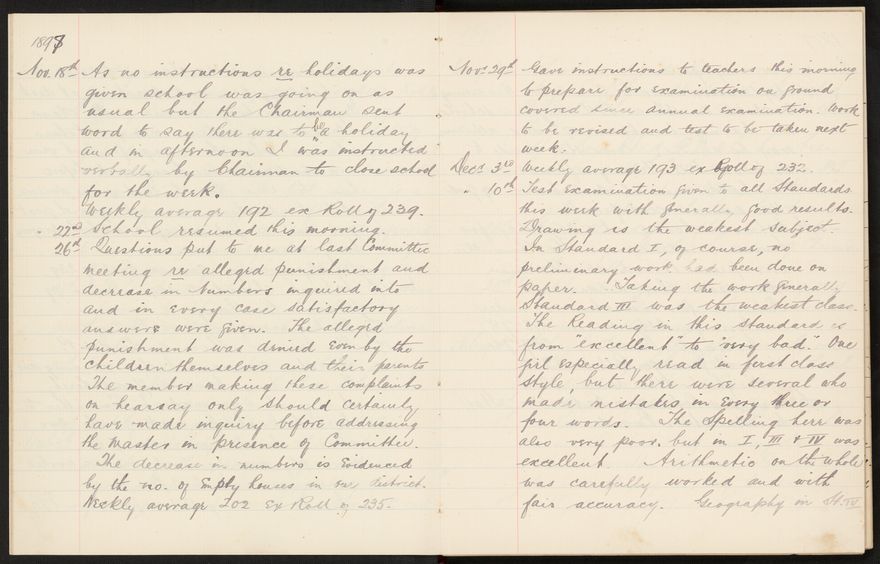 1897
Nov. 18th As no instructions re holidays was
given school was going on as
usual but the Chairman sent
word to say there was to be a holiday
and in afternoon I was instructed
verbally by Chairman to close school
for the week.
Weekly average 192 ex Roll of 239.
" 22nd School resumed this morning.
26th Questions put to me at last Committee
meeting re alleged punishment and
decrease in numbers inquired into
and in every case satisfactory
answers were given. The alleged
punishment was denied even by the
children themselves and their parents
The member making these complaints
on hearsay only should certainly
have made inquiry before addressing
the Master in presence of Committee.
The decrease in numbers is evidenced
by the no. of Empty houses in our district.
Weekly average 202 Ex Roll of 235.
Nov. 29th Gave instructions to teachers this morning
to prepare for examination on ground
covered since annual examination. Work
to be revised and test to be taken next
week.
Decr 3rd Weekly average 193 ex Roll of 232.
" 10th Test Examination given to all Standards
this week with generally good results.
Drawing is the weakest subject.
In Standard I, of course, no
preliminary work had been done on
paper. Taking the work generally
Standard III was the weakest class.
The Reading in this Standard is
from "excellent" to "very bad." One
girl especially, read in first class
style, but there were several who
made mistakes in every three or
four words. The Spelling here was
also very poor. but in I, III & IV was
excellent. Arithmetic on the whole
was carefully worked and with
fair accuracy. Geography in St. IV